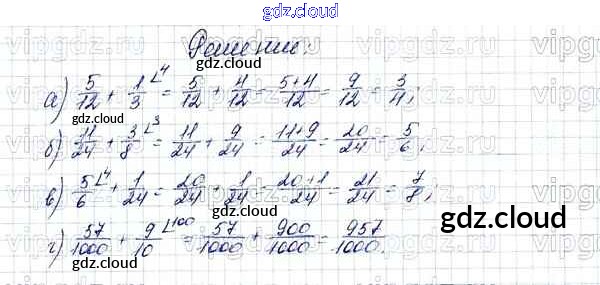 gdz.cloud
Решение.
gdz.cloud
а) 5/12 + 1/3 ∟4 = 5/12 + 4/12 = 5+4/12 = 9/12 = 3/4;
gdz.cloud
б) 11/24 + 3/8 ∟3 = 11/24 + 9/24 = 11+9/24 = 20/24 = 5/6;
в) 5/6 ∟4 + 1/24 = 20/24 + 1/24 = 20+1/24 = 21/24 = 7/8;
gdz.cloud
gdz.cloud
г) 57/1000 + 9/10 ∟100 = 57/1000 + 900/1000 = 957/1000.
gdz.cloud